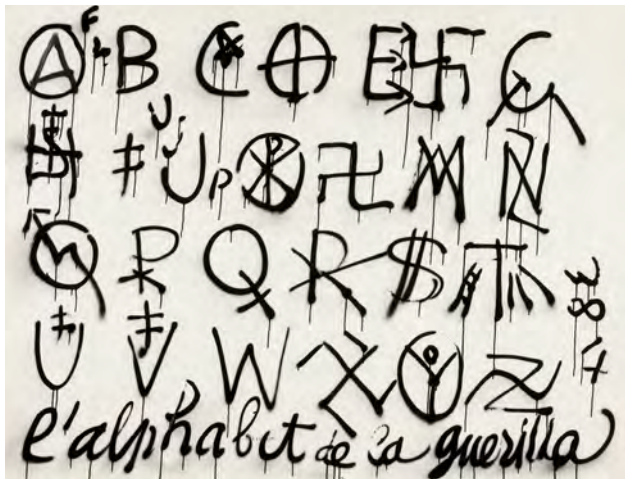 A B C E G
U M N
P Q R $ T
U V W X Y Z
l'alphabet de la guerilla